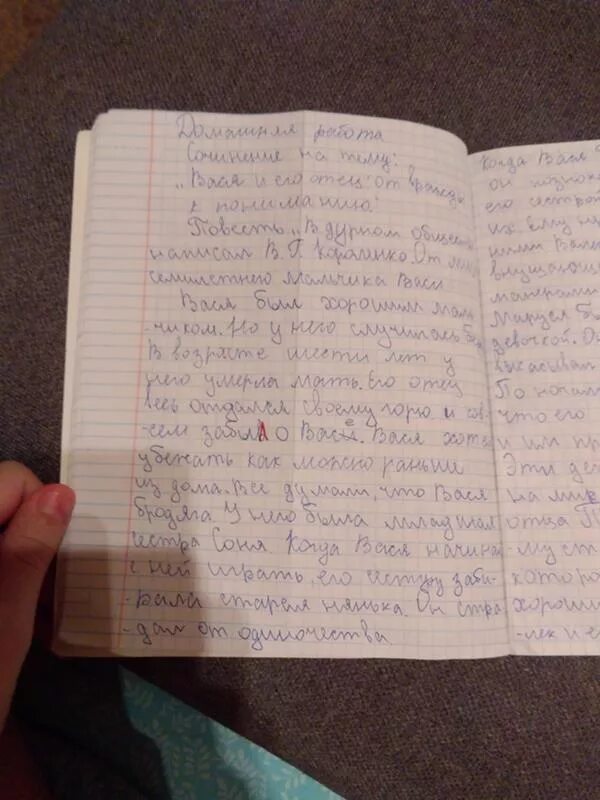 Домашняя работа
Сочинение на тему:
„Вася и его отец: от вражды
к пониманию."
Повесть „В дурном обществ
написал В. Г. Короленко. От
семилетнего мальчика Васи
Вася был хорошим маль
-чиком. Но у него случилась бе
В возрасте шести лет у
него умерла мать. Его отец
весь отдался своему горю и сов-
-сем забыл о Васе. Вася хотел
убежать как можно раньше
из дома. Все думали, что Вася
бродяга. У него была младшая
сестра Соня. Когда Вася начина
с ней играть, его сестру заби-
-рала старая нянька. Он стра
-дал от одиночества
Когда Вася
он позна
его сестрой
их ему
ними Вал
внушающи
манерами
Маруся бы
девочкой. О
высасывал
По
что его
и им пр
Эти де
на
отца
-му ст
которо
хороши
-лек и е